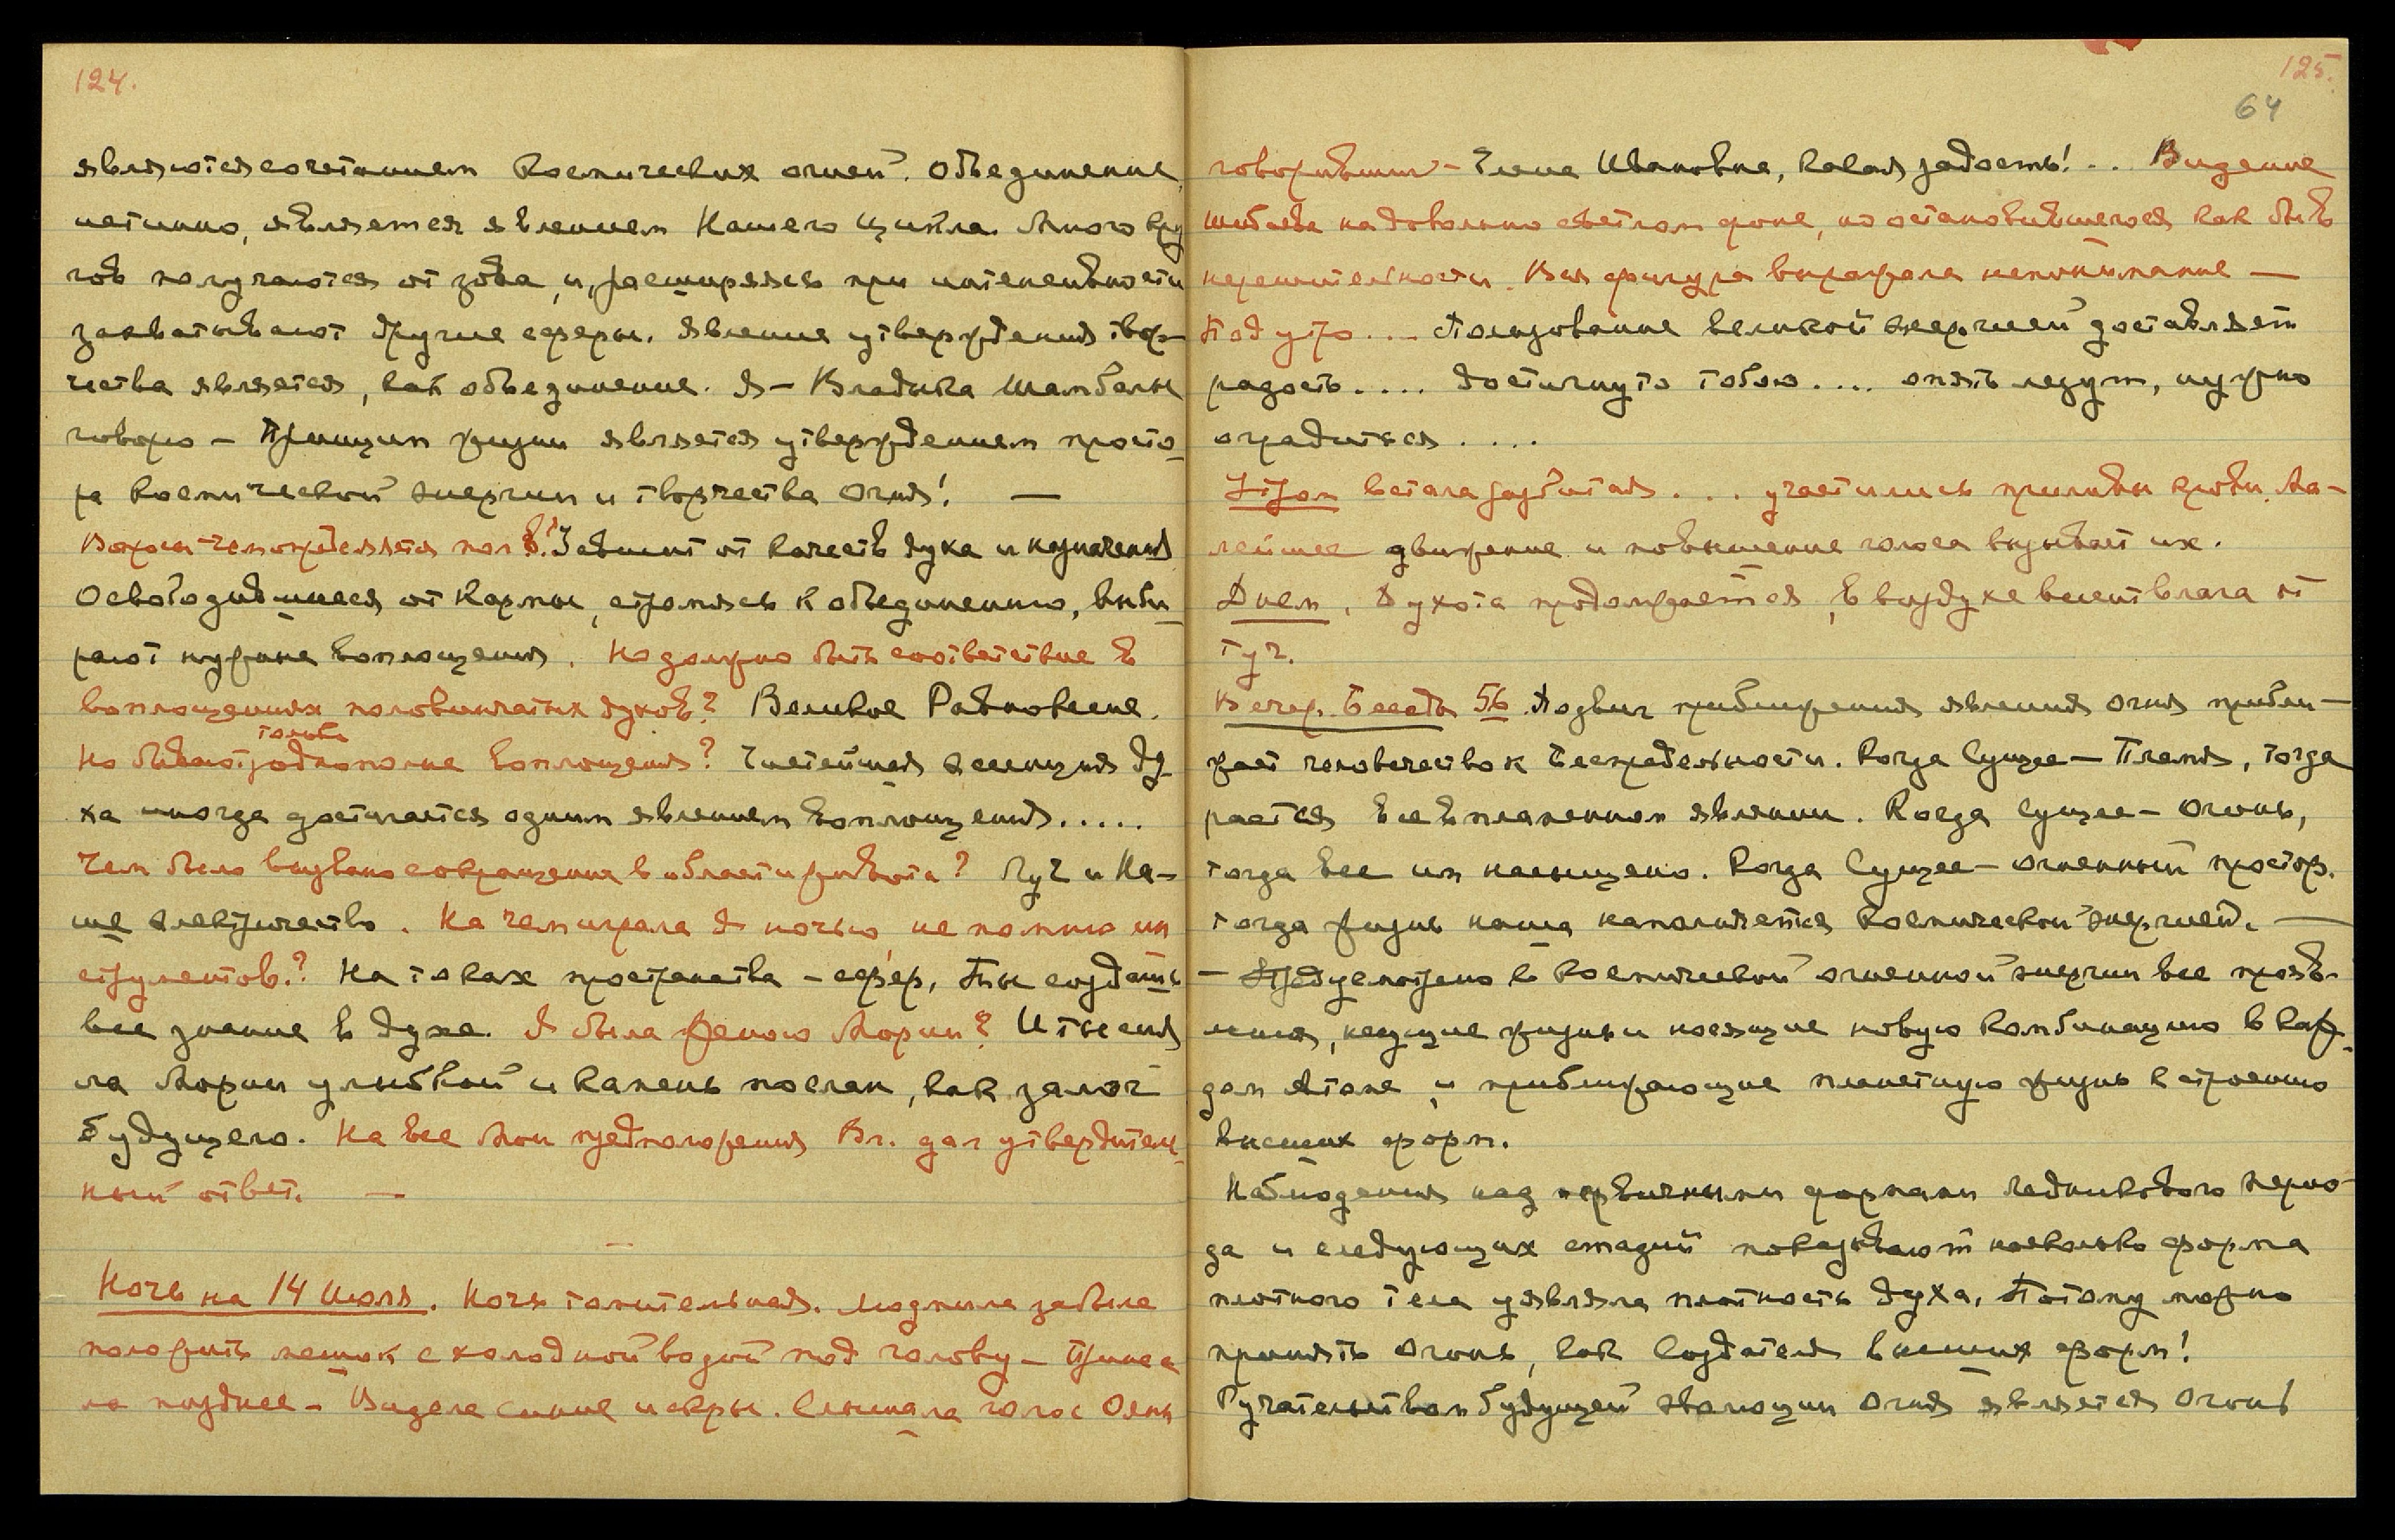 124.
являются сочетанием космических огней. Объединение,
истинно, является явлением Нашего Цикла. Много кру
гов получаются от зова, и, расширяясь при интенсивности
захватывают другие сферы. Явление утверждения твор-
чества является, как объединение. Я – Владыка Шамбалы
говорю – Принцип жизни является утверждением просто-
ра космической энергии и творчества Огня! —
Вопросы – чем определяется пол? Зависит от качеств духа и назначения
Освободившиеся от Кармы, стремясь к объединению, выби-
рают нужные воплощения. Но должно быть соответствие в
воплощениях половинчатых духов? Великое Равновесие.
Но бывают только однополые воплощения? Чистейшая эссенция ду-
ха иногда достигается одним явлением воплощения.....
Чем было вызвано сокращение в области живота? Луч и На-
ше электричество. На чем играла я ночью, не помню ин
струментов? На токах пространства – сфер, Ты создашь
все знание в духе. Я была женою Мории? И ты сия
ла Мории улыбкой и Камень послан, как залог
будущего. На все мои предположения Вл. дал утвердитель-
ный ответ. —
Ночь на 14 Июля. Ночь томительная. Людмила забыла
положить мешок с холодной водой под голову – Принес
ла позднее – Видела синие искры. Слышала голос Ояны
125.
64
говоривший – Елена Ивановна, какая радость! .. Видение
Шибаева на довольно светлом фоне, но остановившегося как бы в
нерешительности. Вся фигура выражала непонимание —
Под утро ... Пользование великой энергией доставляет
радость .... Достигнуто тобою .... опять лезут, нужно
оградиться ....
Утром встала разбитая ... участились приливы крови. Ма-
лейшее движение и повышение голоса вызывает их.
Днем. Духота продолжается, в воздухе висит влага от
туч.
Вечер. Беседа 56 Подвиг приближения явления огня прибли-
жает человечество к Беспредельности. Когда Сущее – Пламя, тогда
рается все в пламенном явлении. Когда Сущее – Огонь,
тогда все им насыщено. Когда Сущее – огненный простор,
тогда жизнь наша наполняется Космической энергией. —
– Предусмотрено в космической огненной энергии все прояв-
ления, несущие жизнь и носящие новую комбинацию в каж-
дом атоме, и приближающие планетную жизнь к строению
высших форм.
Наблюдения над первичными формами ледникового перио-
да и следующих стадий показывают насколько форма
плотного тела уявляла плотность духа. Потому можно
принять Огонь, как Создателя высших форм!
Ручательством будущей эволюции Огня является Огонь